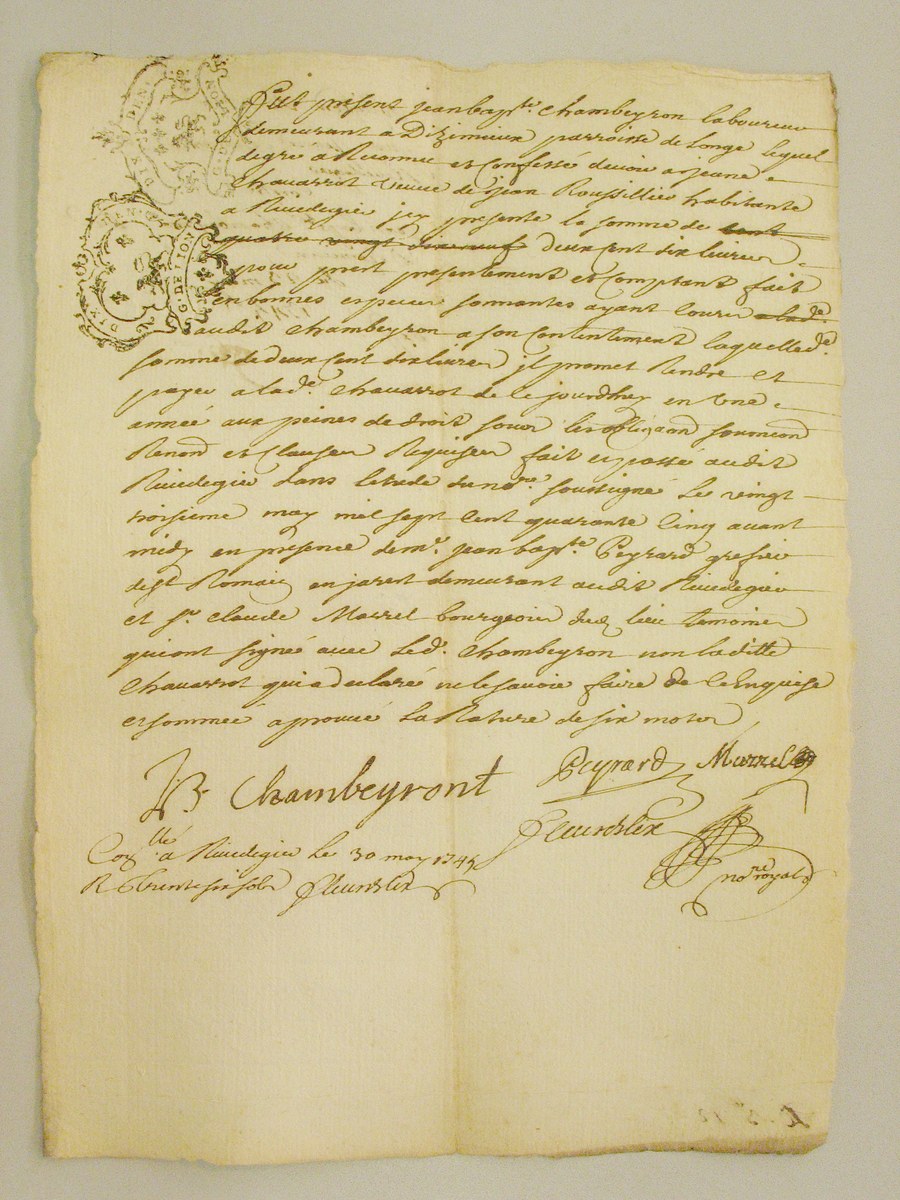 Fut présent jean bapte Chambeyron laboureur
demeurant a Dizimieux parroisse de Longe lequel
degré a Reconnu et Confessé devoir a jeane
Chavarrot veuve de jean Roussillier habitante
a Rivedegier jcy presente la somme de cent
quatre vingt dix neuf deux cent dix livres
pour prest presentement et Comptant fait
en bonnes especes sonnantes ayant Cours a lade
audit Chambeyron a son Contentement laquelle de
somme de deux cent dix livres jl promet Rendre et
payer a lade Chavarrot de ce jourdhuy en Une
année aux peines de droit sous les obligaon soumon
Renond et Clauses Requises fait et passé audit
Rivedegier dans letude du nore soussigné Le vingt
troisieme may mil sept Cent quarante Cinq avant
midy en presence de mr. jean bapte Peyrard grefier
de st Romain en jarest demeurant audit Rivedegier
et sr. claude Marrel bourgeois dud lieu temoins
qui ont signé avec Led. Chambeyron non laditte
Chavarrot qui a declaré ne le savoir faire de ce Enquise
et sommée aprouvé La Rature de six mots
JB Chambeyront Peyrard Marrel
Fleurdelix
nore royal
Conllé a Rivedegier Le 30 may 1745
R trente six sols Fleurdelix
DIX DENI
G. DE LION